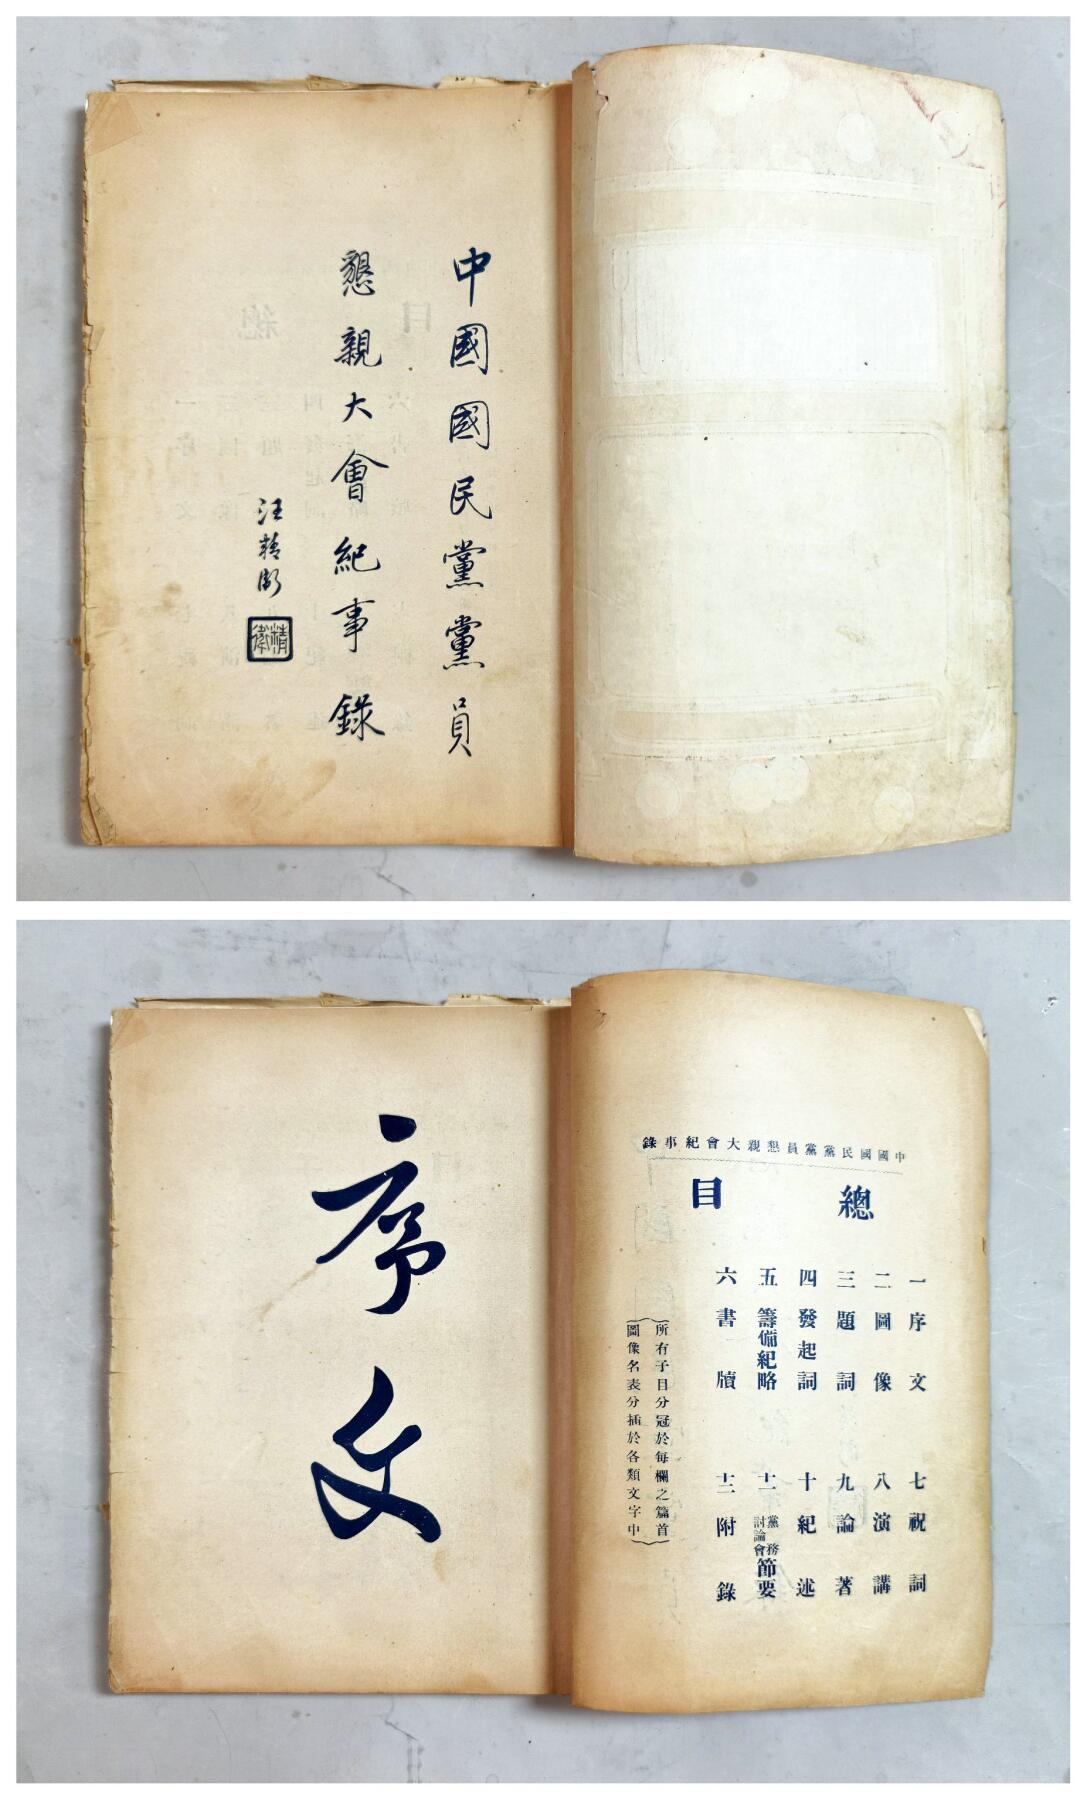 中國國民黨黨員
懇親大會紀事錄
汪精衛
精衛
中國國民黨黨員懇親大會紀事錄
總目
一序文
七祝詞
二圖像
八演講
三題詞
九論著
四發起詞
十紀述
五籌備紀略
十一黨務討論會節要
六書牘
十二附錄
(所有子目分冠於每欄之篇首
圖像名表分插於各類文字中)
序文